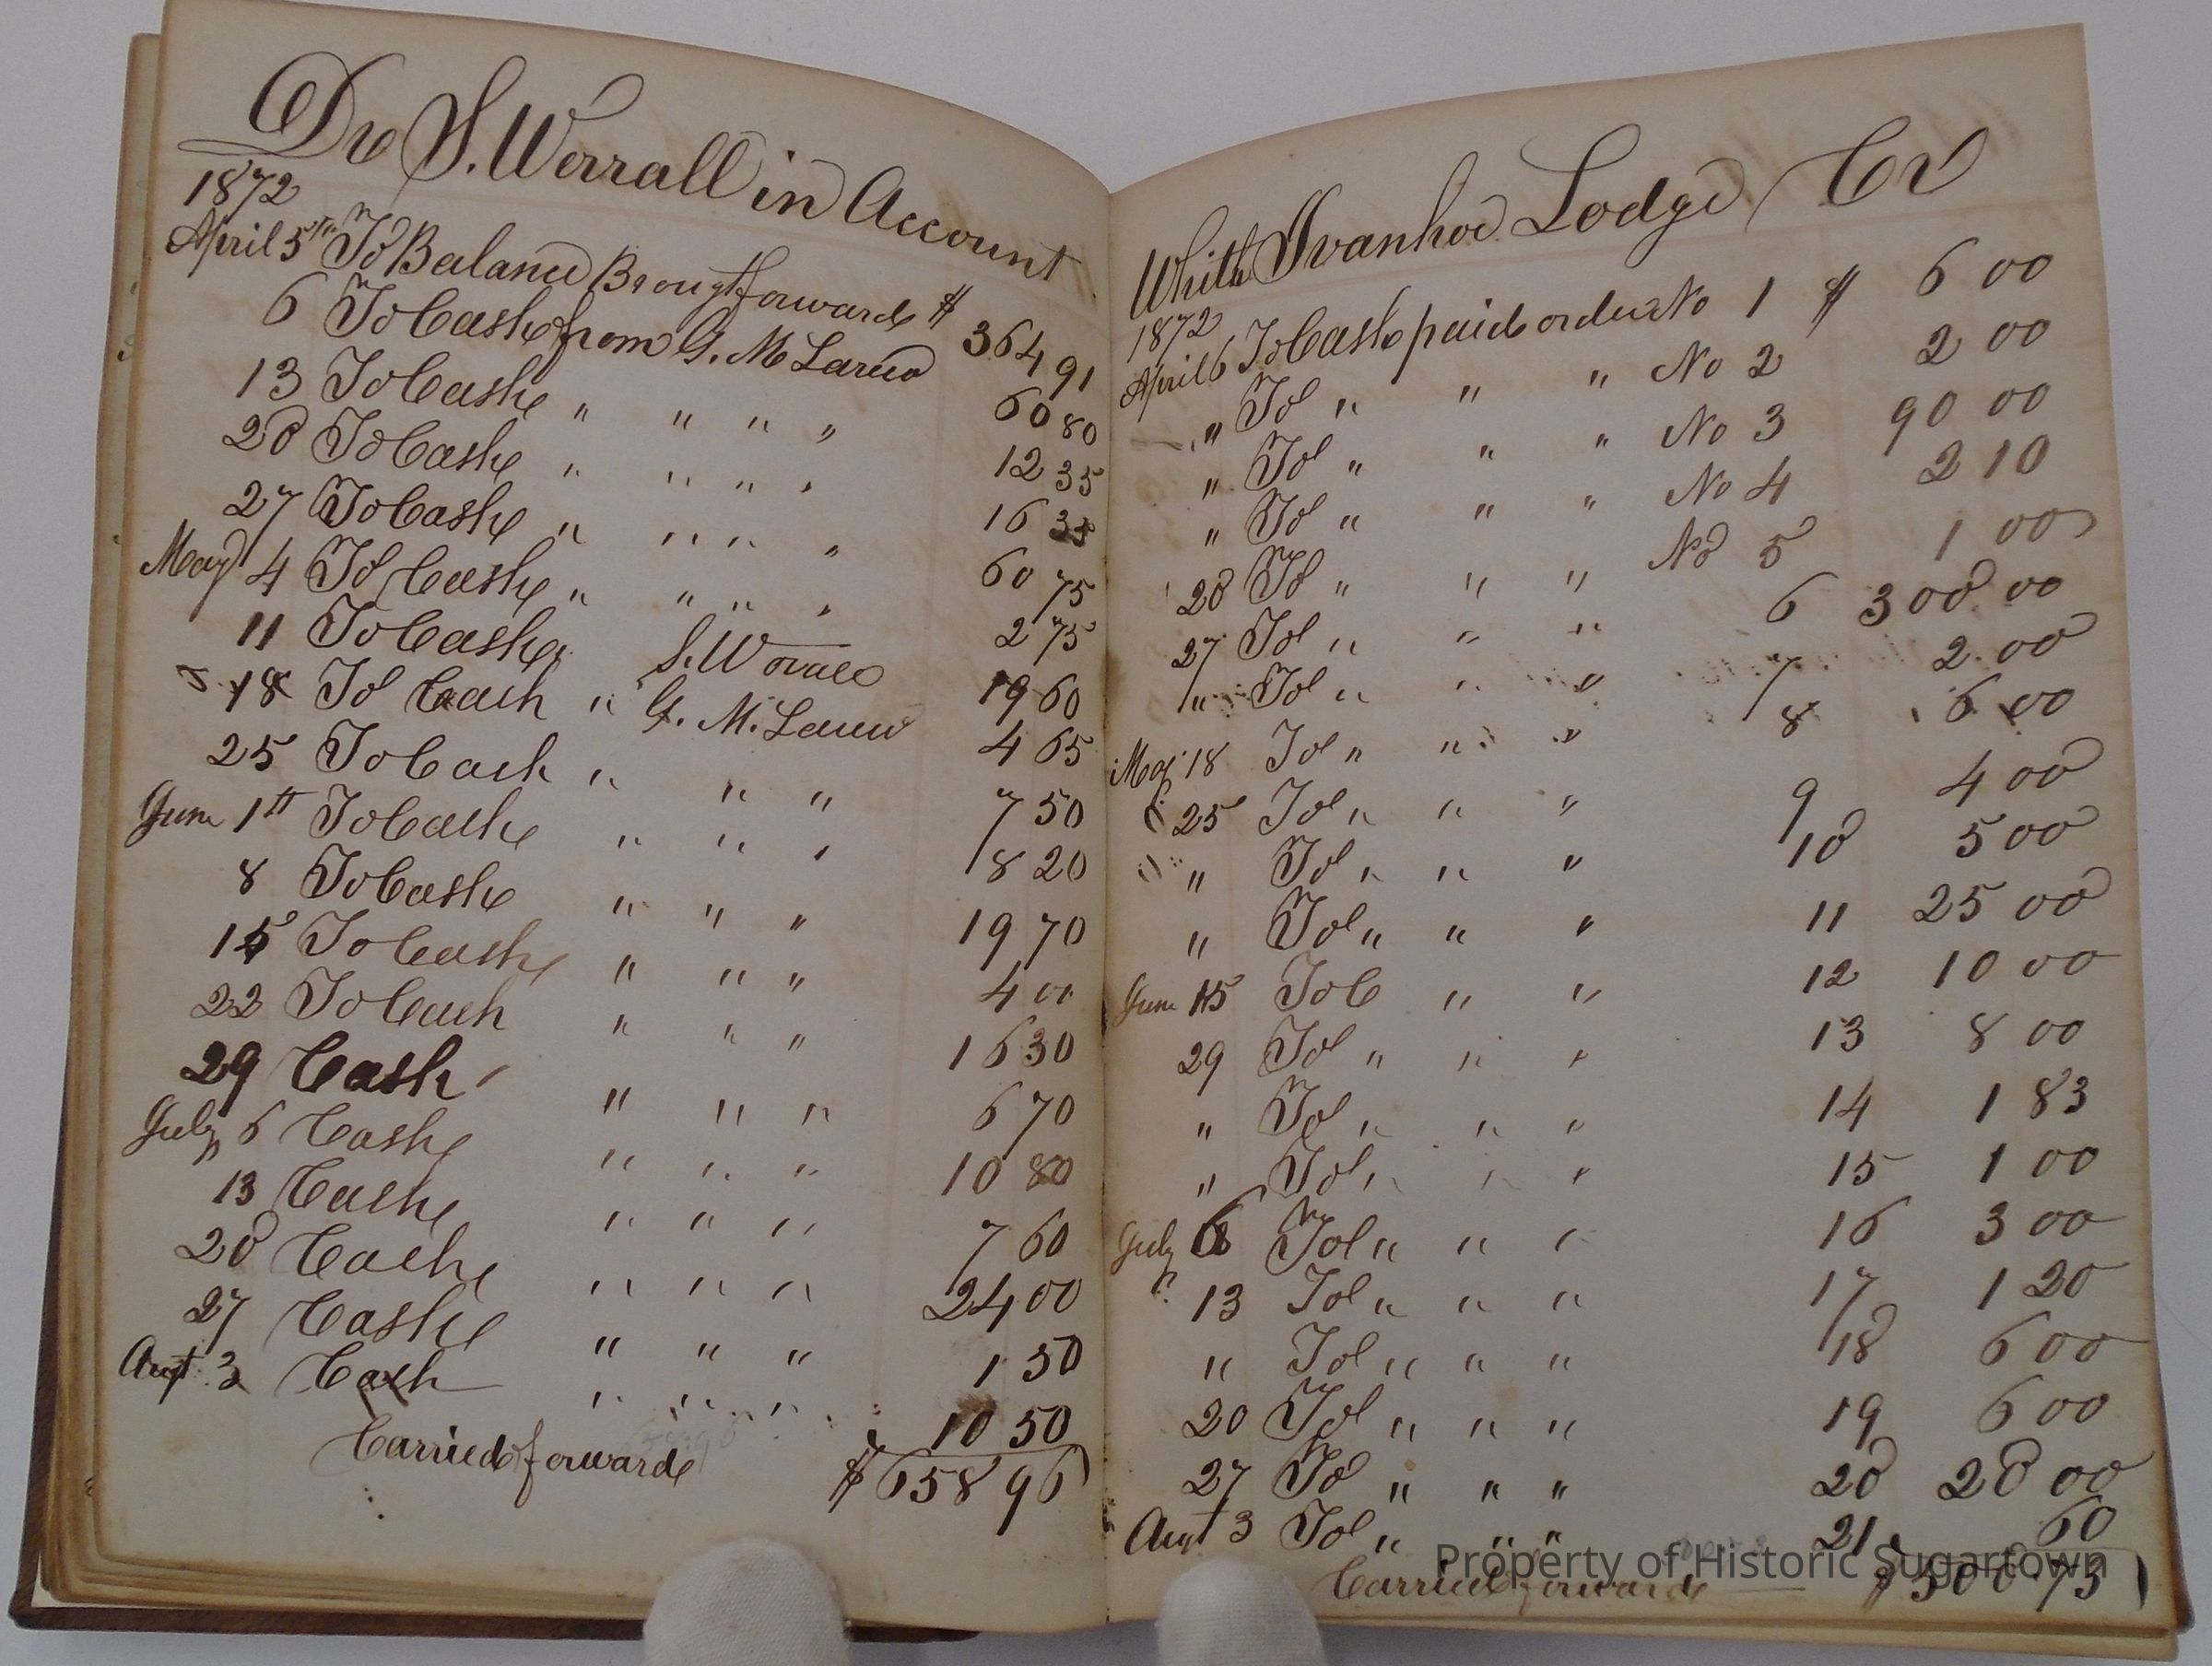 Dr S. Worrall in Account
1872
April 5th To Balance Brougt forward $ 364 91
6 To Cash from G. M Larew 60 80
13 To Cash " " " " 12 35
20 To Cash " " " " 16 35
27 To Cash " " " " 60 75
May 4 To Cash " " " " 2 75
11 To Cash " S. Worrall 19 60
18 To Cash " G. M. Larew 4 65
25 To Cash " " " 7 50
June 1st To Cash " " " 8 20
8 To Cash " " " 19 70
15 To Cash " " " 4 00
22 To Cash " " " 16 30
29 Cash " " " 6 70
July 6 Cash " " " 10 80
13 Cash " " " 7 60
20 Cash " " " 24 00
27 Cash " " " 1 50
Augt. 3 Cash " " " 10 50
Carried forward $ 658 96
With Ivanhoe Lodge Cr
1872
April 6 To Cash paid order No 1 $ 6 00
" To " " " No 2 2 00
" To " " " No 3 90 00
" To " " " No 4 2 10
20 To " " " No 5 1 00
27 To " " " 6 300 00
" To " " " 7 2.00
May 18 To " " " 8 6 00
25 To " " " 9 4 00
" To " " " 10 5 00
" To " " " 11 25 00
June 15 To C " " 12 10 00
29 To " " " 13 8 00
" To " " " 14 1 83
" To " " " 15 1 00
July 6 To " " " 16 3 00
13 To " " " 17 1 20
" To " " " 18 6 00
20 To " " " 19 6 00
27 To " " " 20 20 00
Augt 3 To " " " 21 60
Carried forward $ 500.73
Property of Historic Sugartown